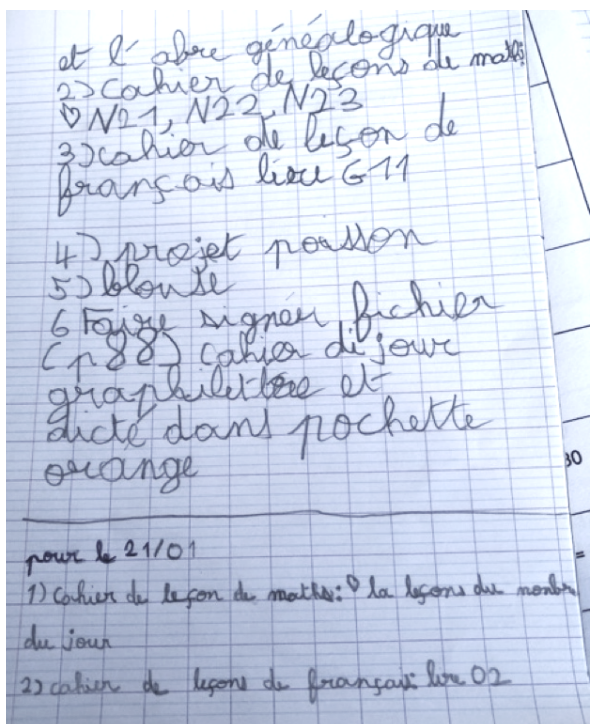 et l'abre généalogique
2) Cahier de leçons de maths
♡ N21, N22, N23
3) cahier de leçon de
français lire G11
4) projet poisson
5) blouse
6 Faire signer fichier
(p88) cahier di jour
graphilettre et
dicté dans pochette
orange
30
=
pour le 21/01
1) Cahier de leçon de maths: ♡ la leçons du nombre
du jour
2) cahier de leçons de français: lire O2